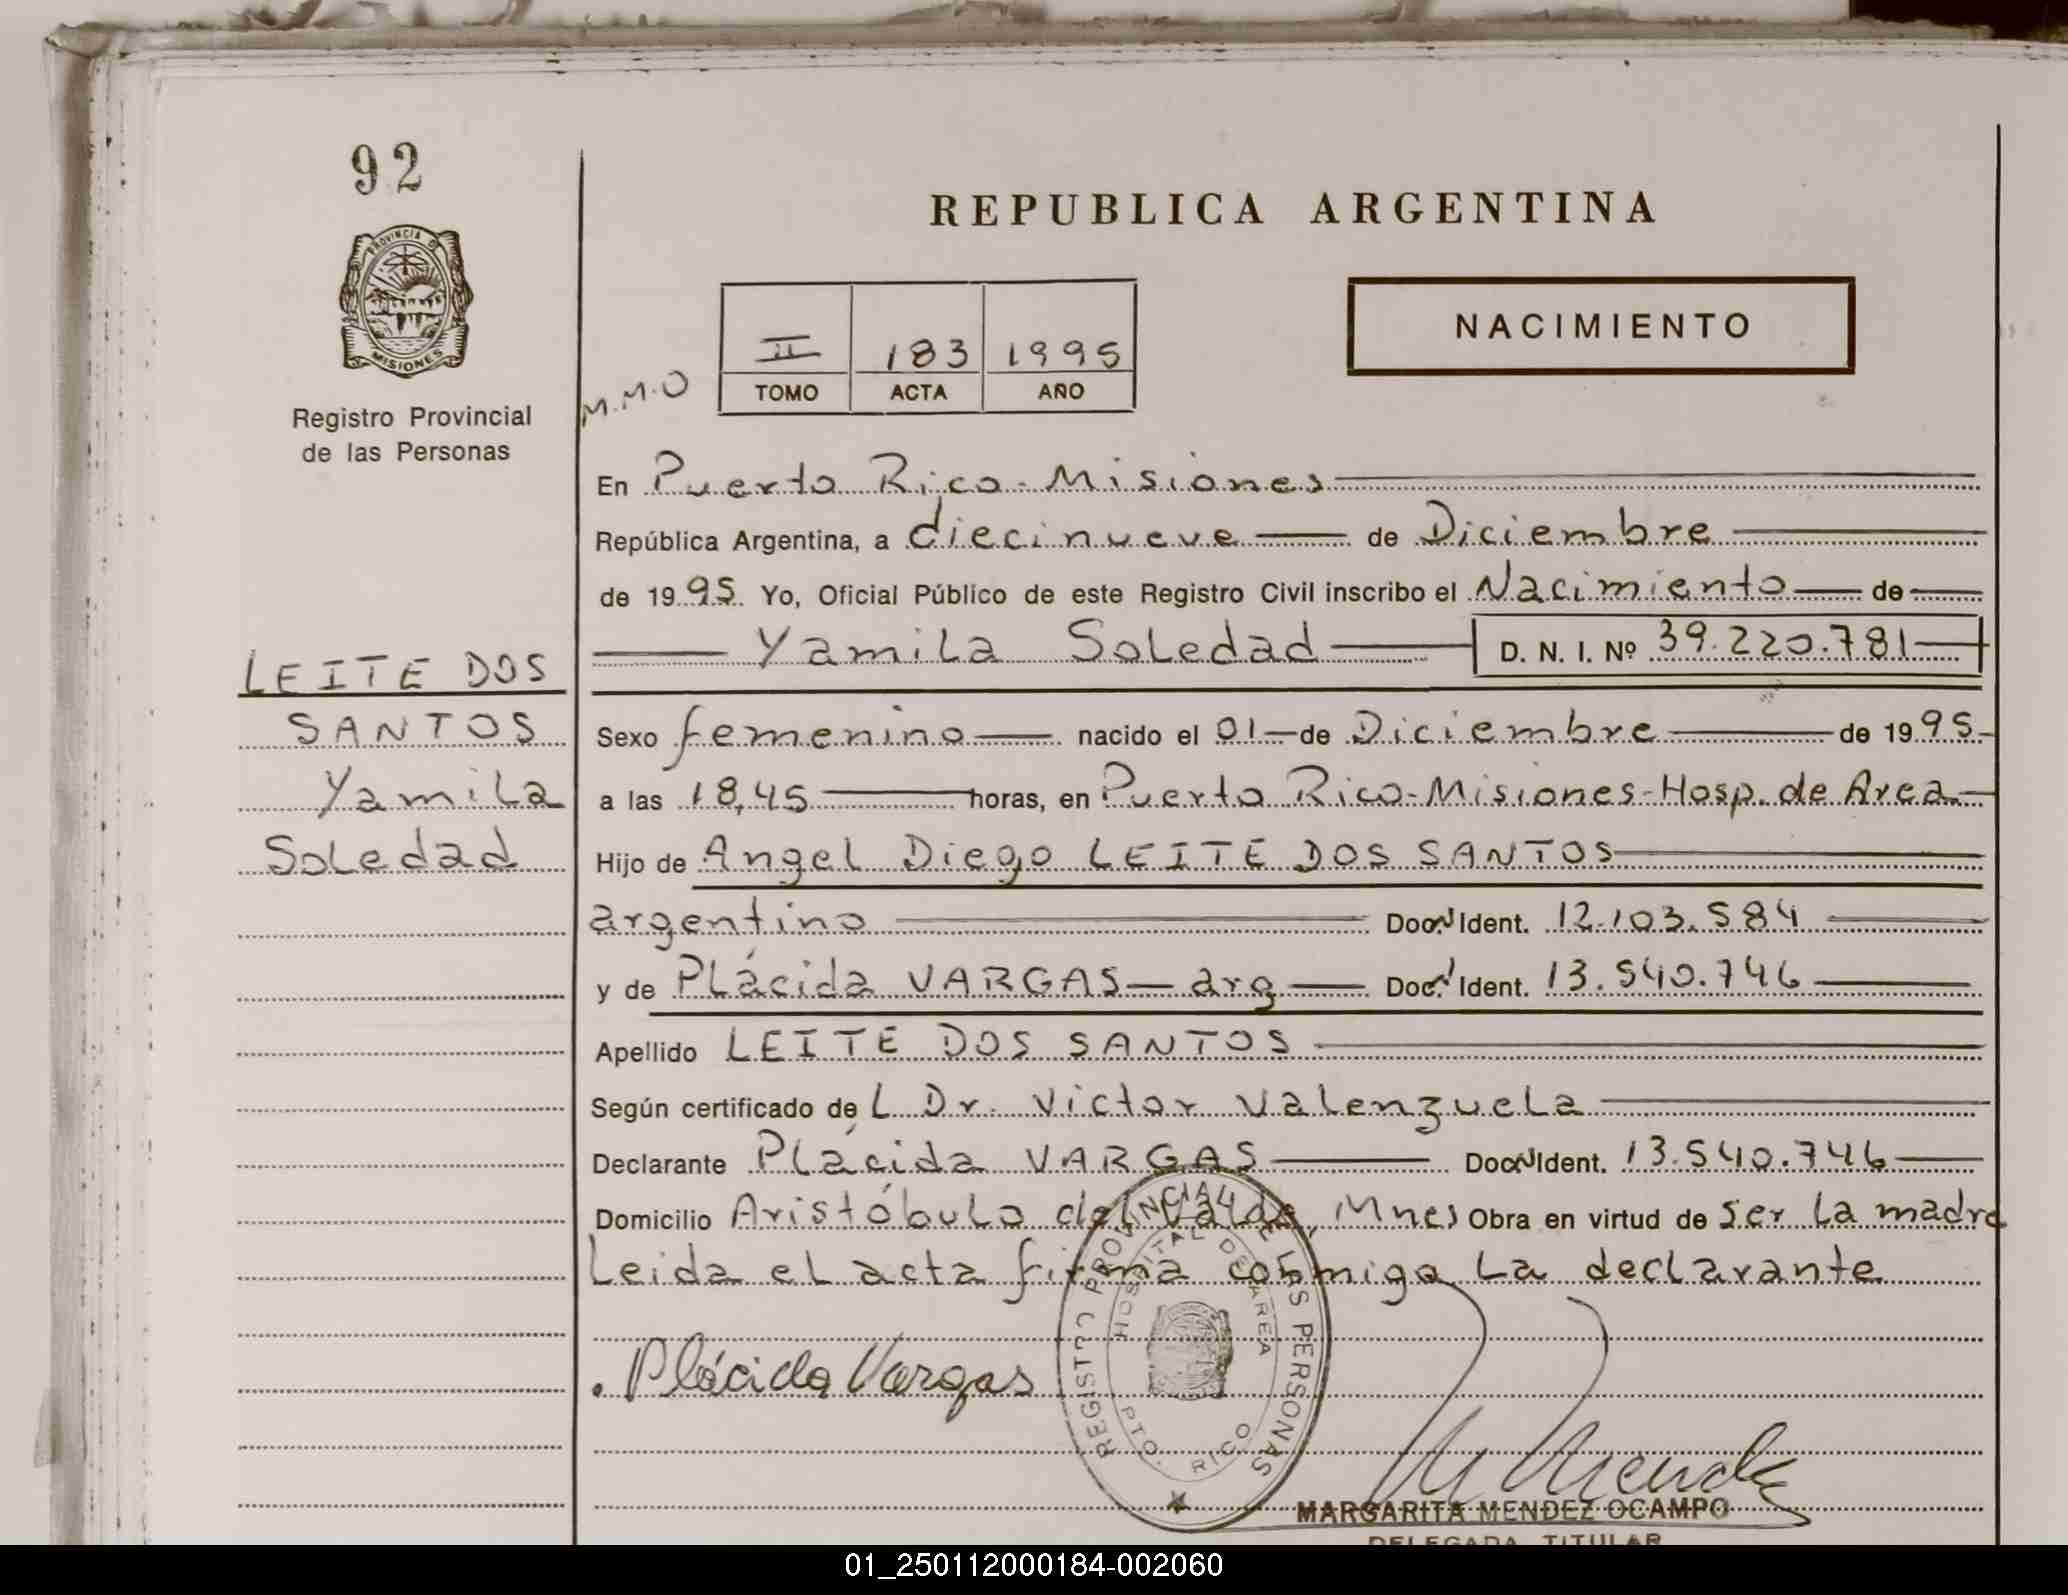 92
PROVINCIA DE
MISIONES
Registro Provincial
de las Personas
REPUBLICA ARGENTINA
NACIMIENTO
II 183 1995
TOMO ACTA AÑO
M.M.O
En Puerto Rico - Misiones
República Argentina, a diecinueve de Diciembre
de 1995. Yo, Oficial Público de este Registro Civil inscribo el Nacimiento de
Yamila Soledad D. N. I. Nº 39.220.781
LEITE DOS
SANTOS
Yamila
Soledad
Sexo femenino nacido el 01 de Diciembre de 1995
a las 18,45 horas, en Puerto Rico-Misiones-Hosp. de Area
Hijo de Angel Diego LEITE DOS SANTOS
argentino Doc. Ident. 12.103.584
y de Plácida VARGAS - arg Doc. Ident. 13.540.746
Apellido LEITE DOS SANTOS
Según certificado del Dr. Victor Valenzuela
Declarante Plácida VARGAS Doc. Ident. 13.540.746
Domicilio Aristóbulo del Valle, Mnes Obra en virtud de ser la madre
Leida el acta firma conmigo La declarante
Plácida Vargas
REGISTRO PROVINCIAL DE LAS PERSONAS
HOSPITAL DE AREA
PTO. RICO
MARGARITA MENDEZ OCAMPO
DELEGADA TITULAR
01_250112000184-002060